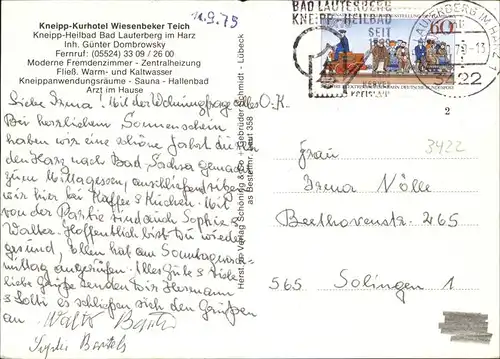 Kneipp-Kurhotel Wiesenbeker Teich
Kneipp-Heilbad Bad Lauterberg im Harz
Inh. Günter Dombrowsky
Fernruf: (05524) 33 09 / 26 00
Moderne Fremdenzimmer - Zentralheizung
Fließ. Warm- und Kaltwasser
Kneippanwendungsräume - Sauna - Hallenbad
Arzt im Hause
11.9.79
Liebe Irma! Mit der Wohnungsfrage alles O.K.
Bei herzlichem Sonnenschein
haben wir eine schöne Fahrt durch
den Harz nach Bad Sachsa gemacht
zum Mittagessen, anschließend sitzen
wir hier bei Kaffee & Kuchen. Mit
von der Partie sind auch Sophie &
Walter. Hoffentlich bist Du wieder
gesund, Ellen hat am Sonntagnach-
mittag angerufen. Alles Gute & viele
liebe Grüße senden Dir Hermann
& Lotti es schließen sich den Grüßen
an Walter Bartels
Sophie Bartels
Herst. u. Verlag Schöning & Co + Gebrüder Schmidt - Lübeck
Bestellnr. Laut 358
BAD LAUTERBERG
KNEIPP-HEILBAD
SEIT
60
LAUTERBERG IM HARZ
79-13
3422
DEUTSCHE BUNDESPOST
2
3422
Frau
Irma Nölle
Beethovenstr. 265
565 Solingen 1